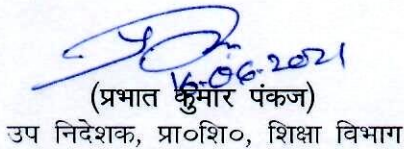 16-06-2021
(प्रभात कुमार पंकज)
उप निदेशक, प्रा०शि०, शिक्षा विभाग